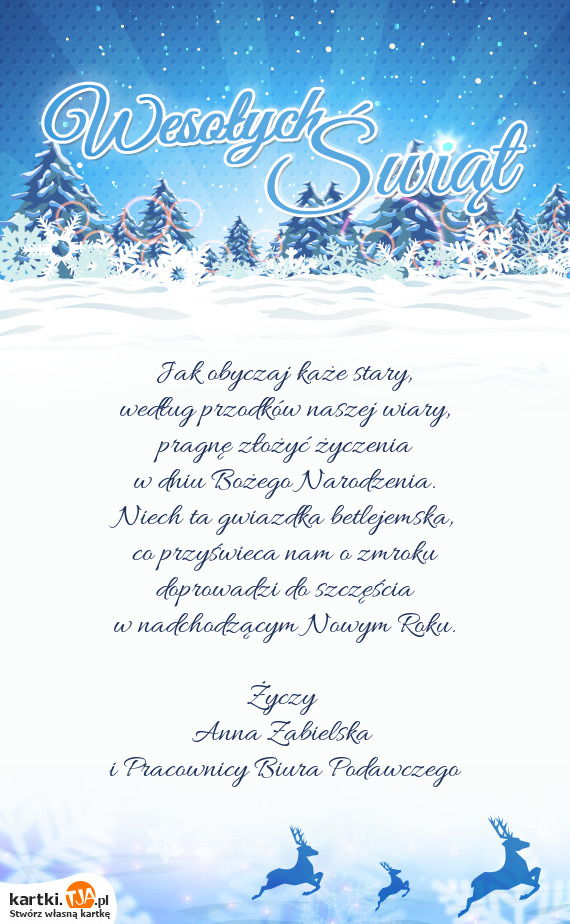 Wesołych
Świąt
Jak obyczaj każe stary,
według przodków naszej wiary,
pragnę złożyć życzenia
w dniu Bożego Narodzenia.
Niech ta gwiazdka betlejemska,
co przyświeca nam o zmroku
doprowadzi do szczęścia
w nadchodzącym Nowym Roku.
Życzy
Anna Zabielska
i Pracownicy Biura Podawczego
kartki.TJA.pl
Stwórz własną kartkę